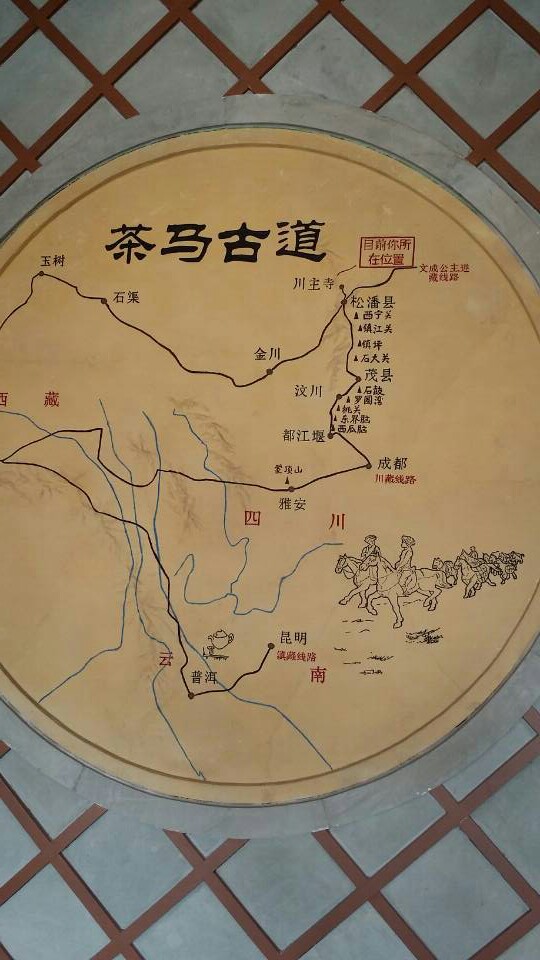 茶马古道
目前你所
在位置
玉树
川主寺
文成公主进
藏线路
石渠
松潘县
西宁关
镇江关
镇坪
石大关
金川
茂县
汶川
石鼓
西藏
罗圈湾
桃关
东界脑
西瓜脑
都江堰
成都
川藏线路
蒙顶山
雅安
四川
昆明
滇藏线路
云南
普洱